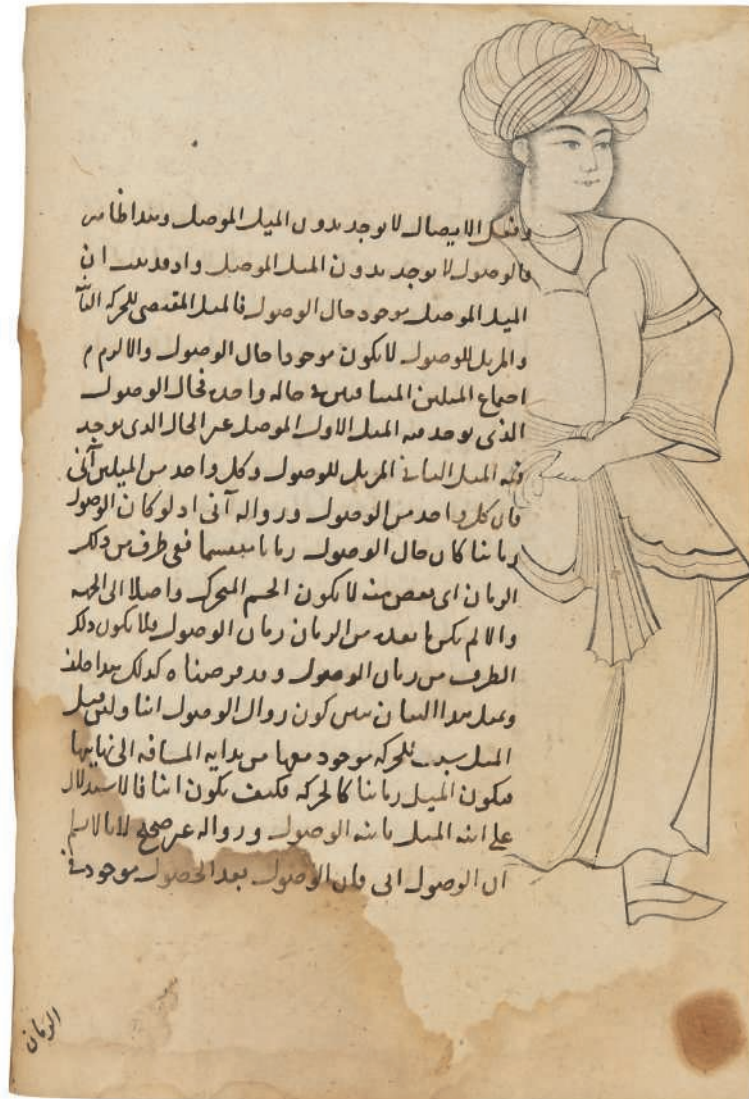 وفعل الايصال لا يوجد بدون الميل الموصل وهذا ظاهر
فالوصول لا يوجد بدون الميل الموصل واذ قد ثبت ان
الميل الموصل موجود حال الوصول فالميل المقتضي للحركة
والمزيل للوصول لا يكون موجودا حال الوصول والا لزم
اجتماع الميلين المتنافيين في حالة واحدة فحال الوصول
الذي يوجد فيه الميل الاول الموصل غير الحال الذي يوجد
فيه الميل الثاني المزيل للوصول وكل واحد من الميلين آني
فان كل واحد من الوصول وزواله آني اذ لو كان الوصول
زمانيا كان حال الوصول زمانا منقسما ففي طرف من ذلك
الزمان اي بعض منه لا يكون الجسم المتحرك واصلا الى الجهة
والا لم يكن ما بعده من الزمان زمان الوصول فلا يكون ذلك
الطرف من زمان الوصول وقد فرضناه كذلك هذا خلف
وبمثل هذا البيان يتبين كون زوال الوصول آنيا وليس قيل
الميل سبب للحركة موجود معها من بداية المسافة الى نهايتها
فيكون الميل زمانيا كالحركة فكيف يكون آنيا فالاستدلال
على آنية الميل بآنية الوصول وزواله غير صحيح لانا لا نسلم
ان الوصول آني فان الوصول بعد الحصول موجود في
الزمان